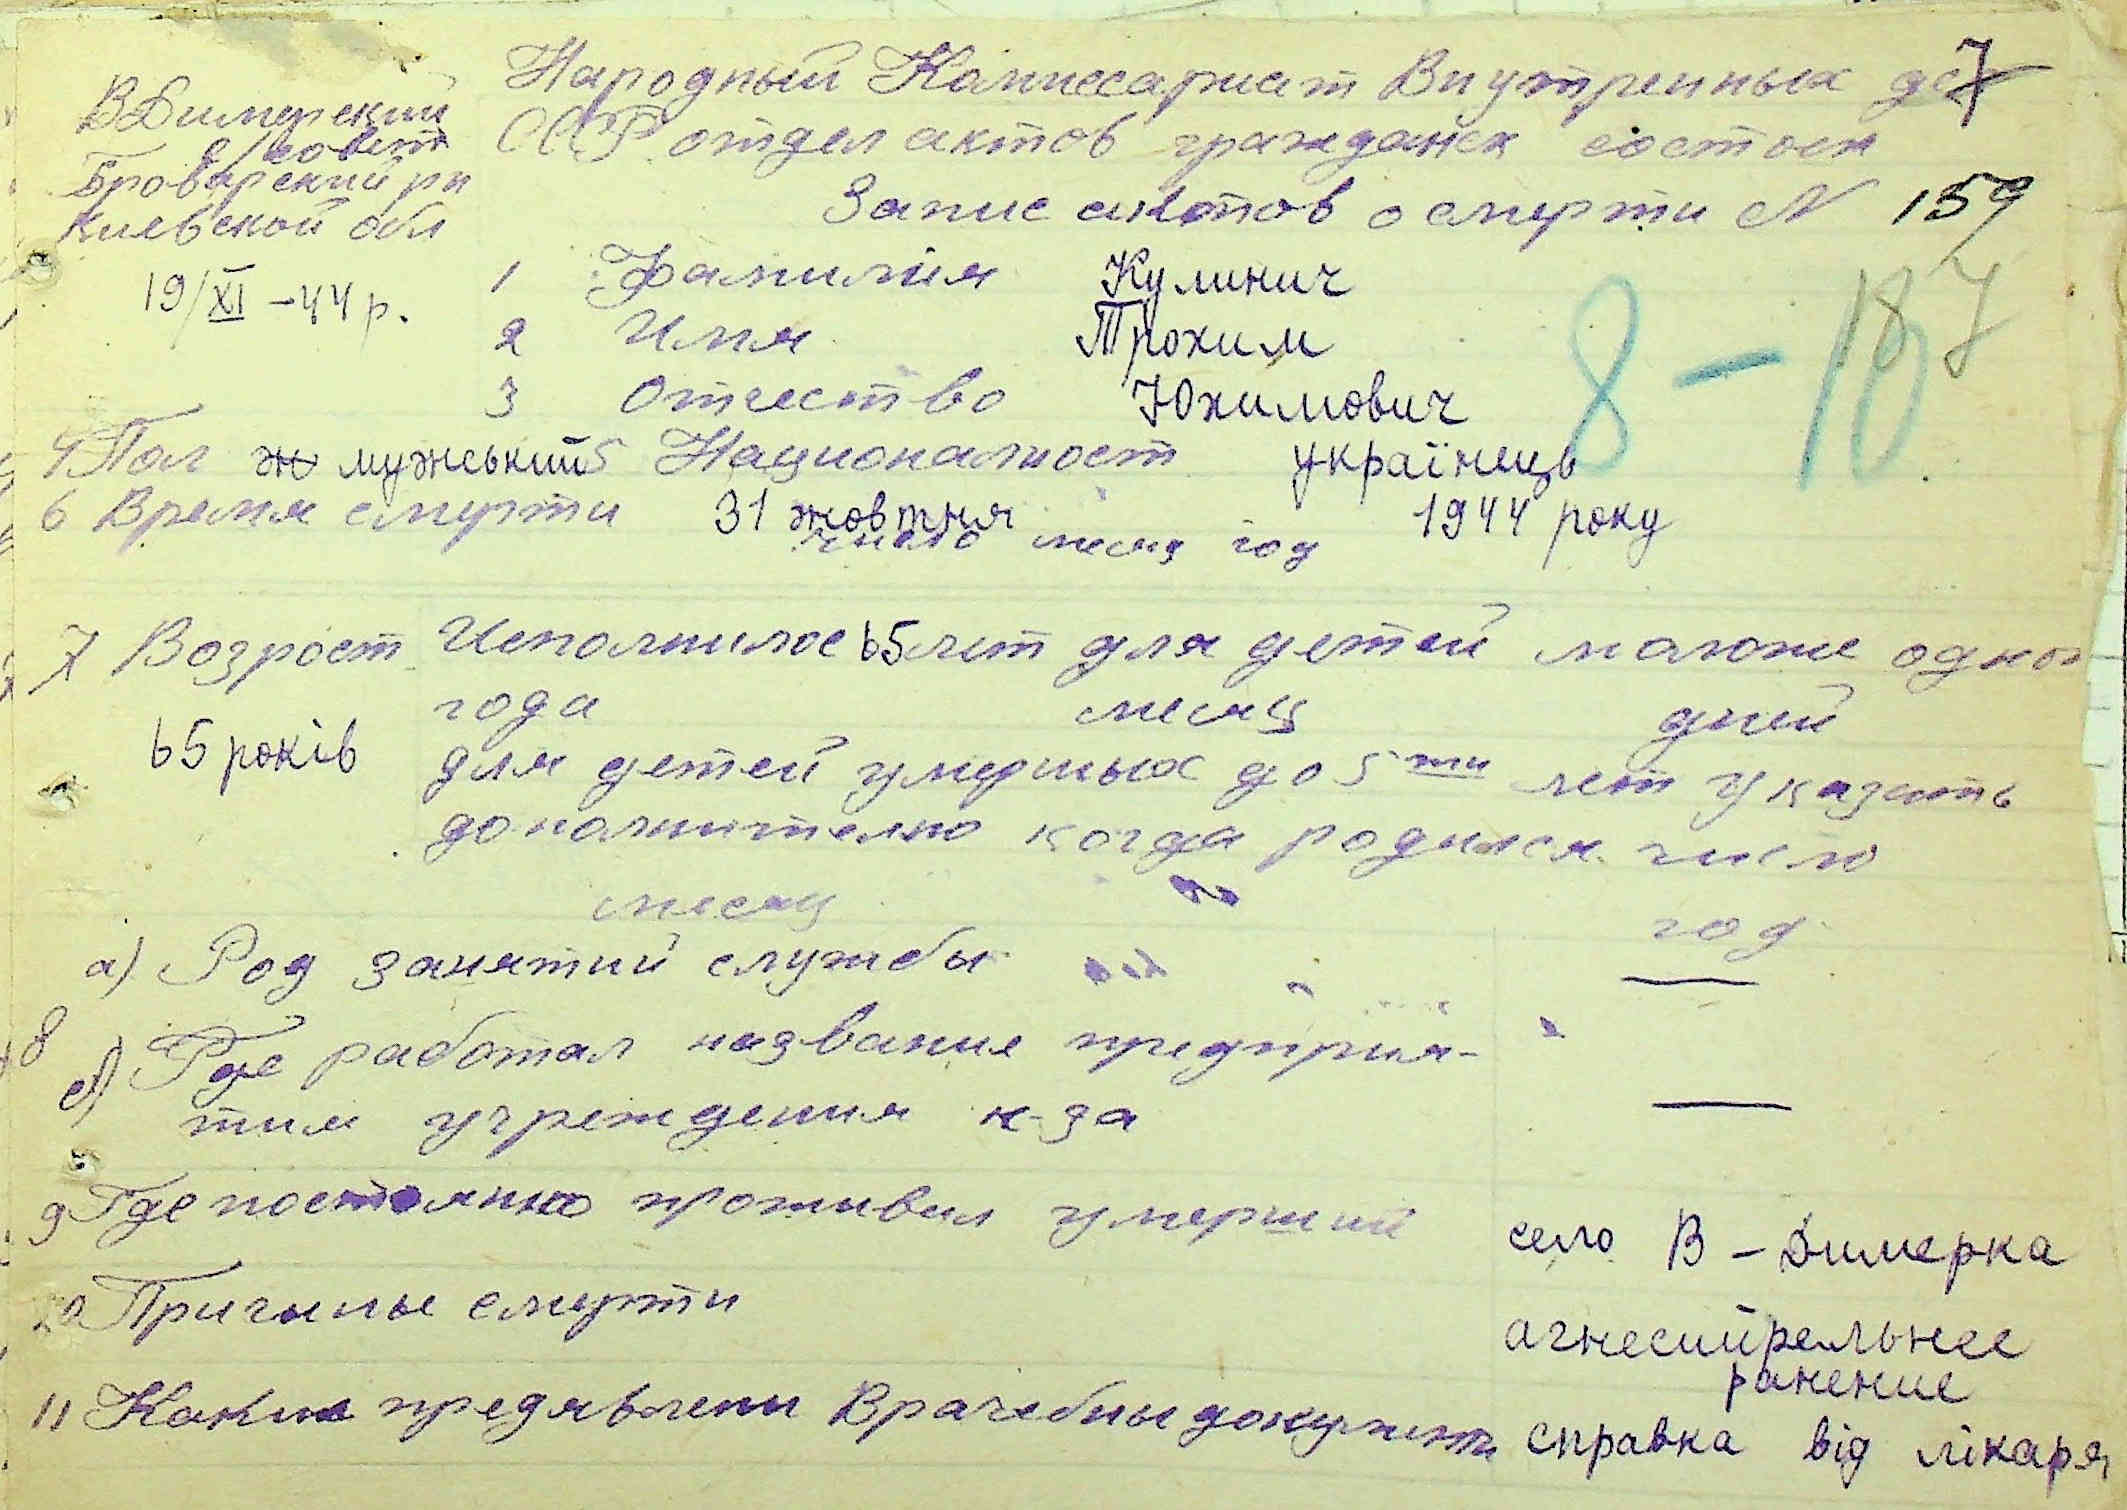 7
Народный Комиссариат Внутренных дел
ВДимерский
с/совет
Броварский рн
Киевской обл
СССР отдел актов гражданск состоян
Запис актов о смерти N 159
19/XI -44 р.
1 Фамилия Кулинич
8 - 187
2 Имя Трохим
3 Отчество Юхимович
4 Пол ж мужський 5 Националност українець
6 Время смерти 31 жовтня 1944 року
число месяц год
7 Возрост Исполнилос 65 лет для детей моложе одной
года месяц дней
65 років
для детей умерших до 5ти лет указать
дополнително когда родился число
месяц год
а) Род занятий службы —
8
б) Где работал название предприя-
тия учреждения к-за —
9 Где постоянно проживал умерший село В - Димерка
10 Причины смерти агнестрельнее
ранение
11 Какие предявлены Врачебны документы справка від лікаря